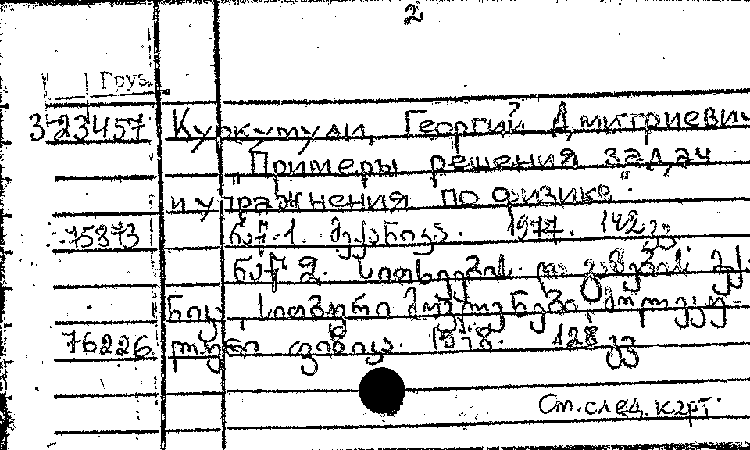 2
Груз.
323457 Куркумули, Георгий Дмитриевич
„Примеры решения задач
и упражнения по физике“
75873 ნაწ. 1. მექანიკა. 1977. 142 გვ
ნაწ 2. სითხეების და გაზების მექა
ნიკა, სითბური მოვლენები, მოლეკუ-
76226 ლური ფიზიკა. 1978. 128 გვ
См. след. карт.